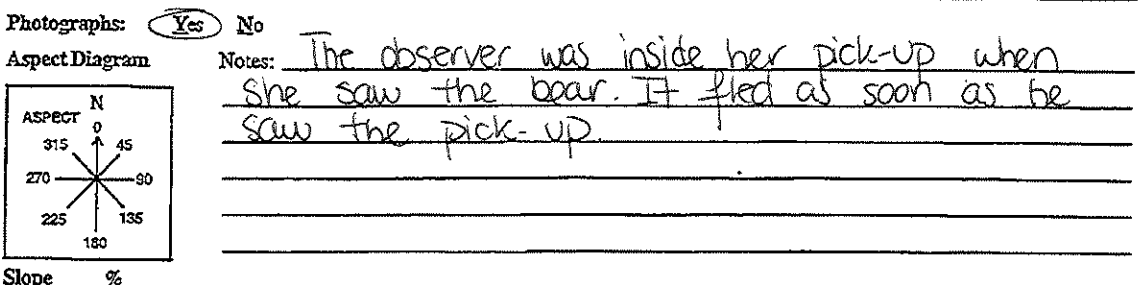 Photographs: Yes No
Aspect Diagram
Notes: The observer was inside her pick-up when
she saw the bear. It fled as soon as he
saw the pick-up.
ASPECT
N
0
315 45
270 90
225 135
180
Slope %